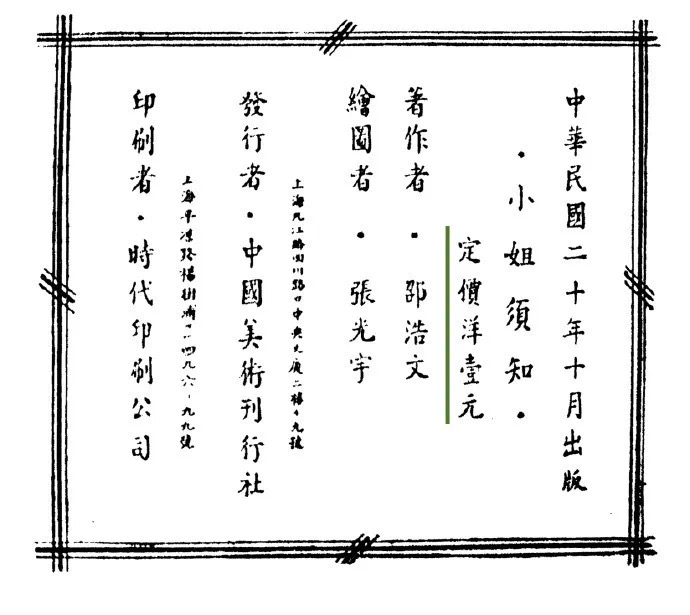 中華民國二十年十月出版
·小姐須知·
定價洋壹元
著作者·邵浩文
繪圖者·張光宇
上海九江路四川路口中央大廈二樓九號
發行者·中國美術刊行社
上海平涼路楊樹浦四九六九九號
印刷者·時代印刷公司